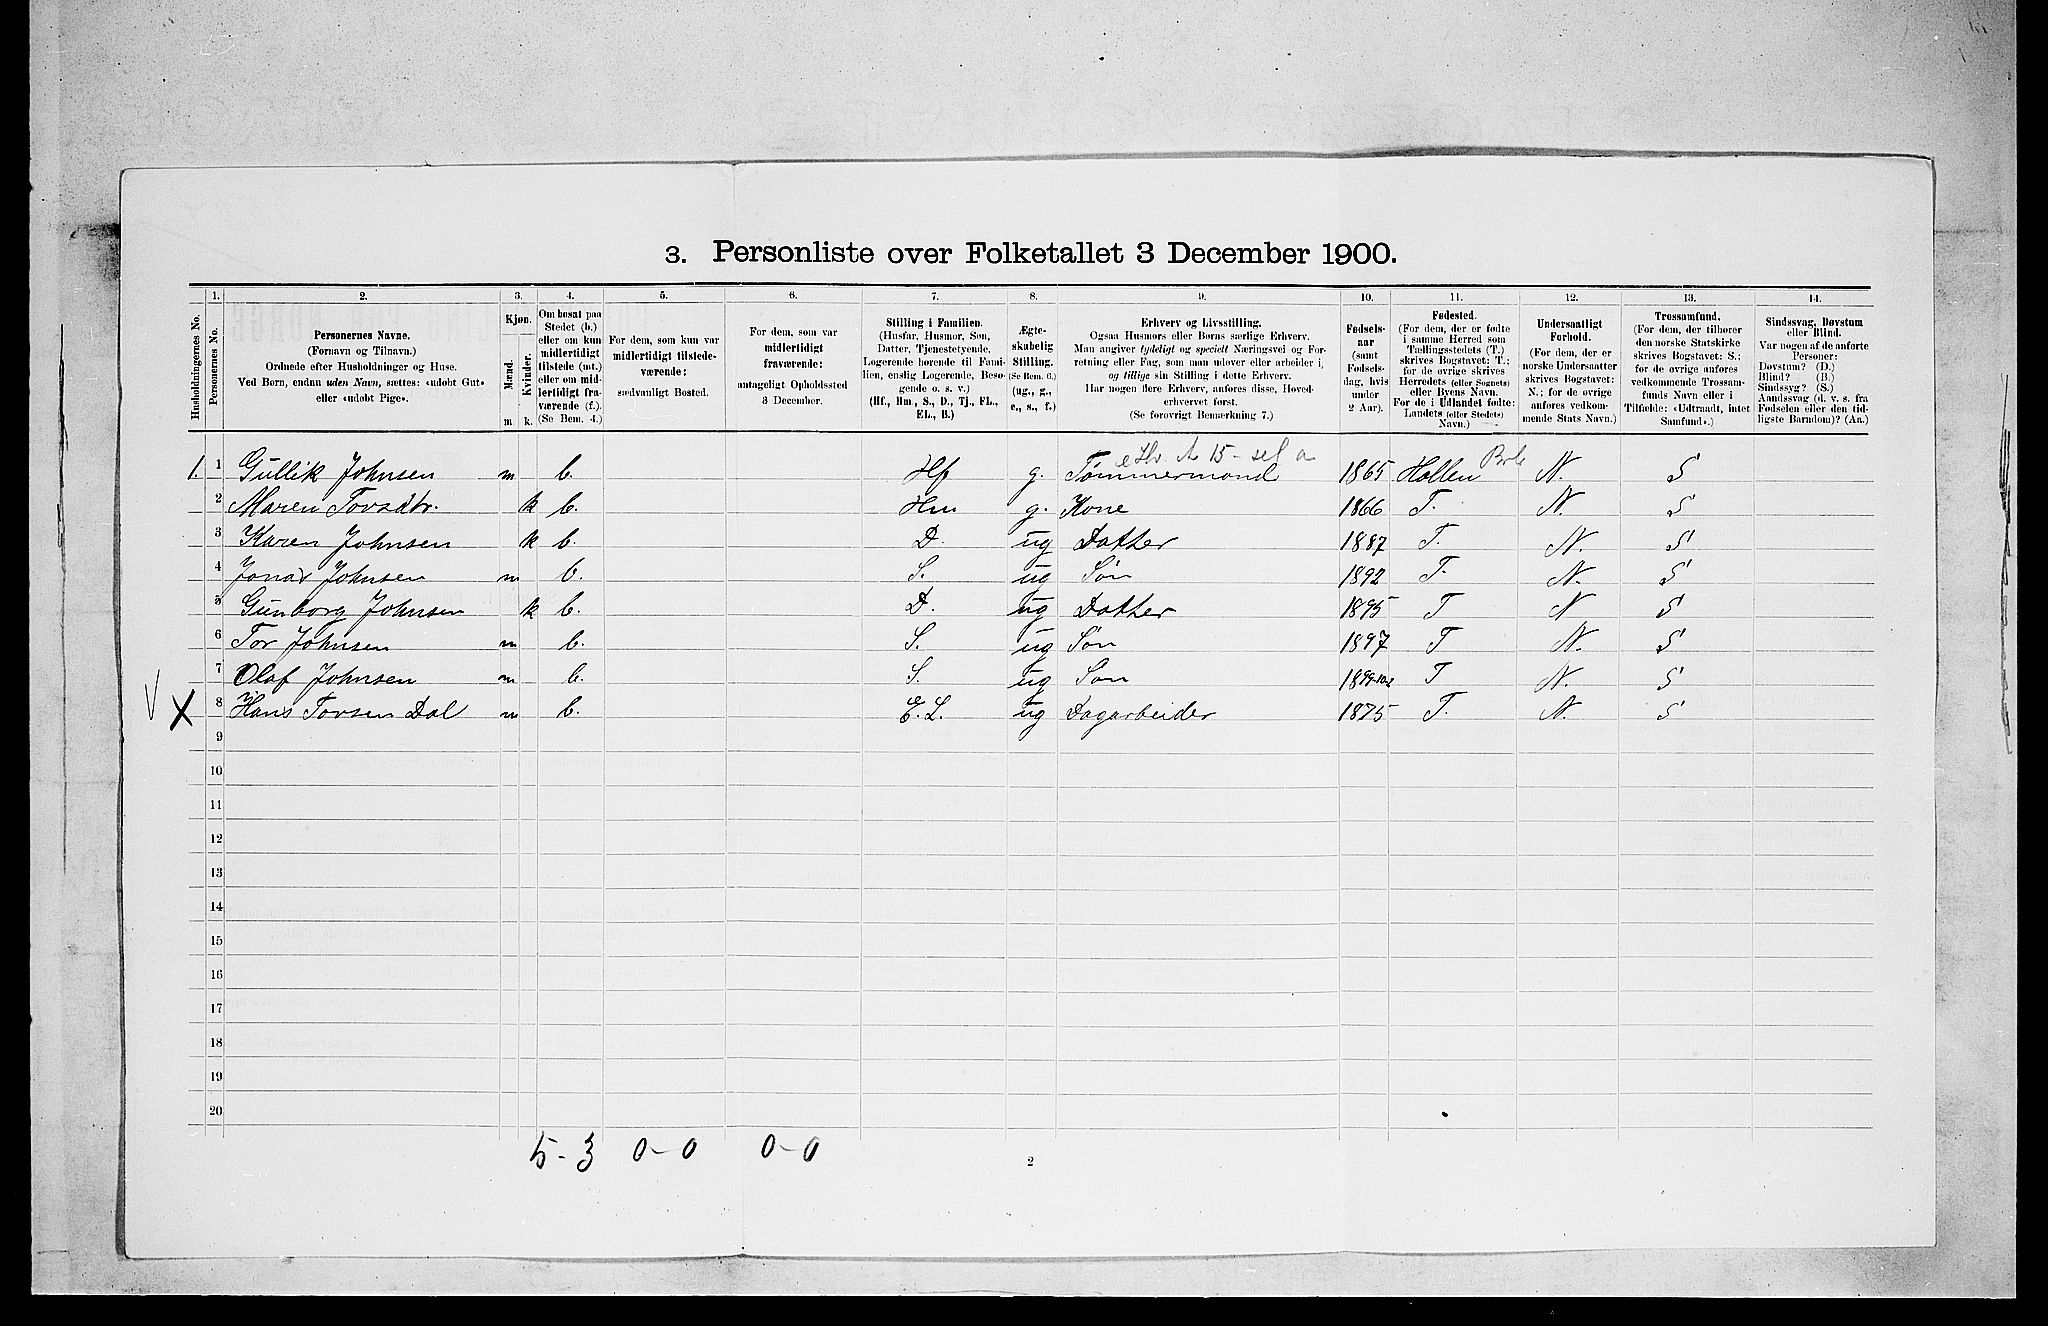 3. Personliste over Folketallet 3 December 1900.
1. 2. 3. 4. 5. 6. 7. 8. 9. 10. 11. 12. 13. 14.
Husholdningernes No.
Personernes No.
Personernes Navne.
(Fornavn og Tilnavn.)
Ordnede efter Husholdninger og Huse.
Ved Børn, endnu uden Navn, sættes: «udøbt Gut»
eller «udøbt Pige».
Kjøn.
Mænd.
Kvinder.
m. k.
Om bosat paa
Stedet (b.)
eller om kun
midlertidigt
tilstede (mt.)
eller om mid-
lertidigt fra-
værende (f.).
(Se Bem. 4.)
For dem, som kun var
midlertidigt tilstede-
værende:
sædvanligt Bosted.
For dem, som var
midlertidigt
fraværende:
antageligt Opholdssted
3 December.
Stilling i Familien.
(Husfar, Husmor, Søn,
Datter, Tjenestetyende,
Logerende hørende til Fami-
lien, enslig Logerende, Besø-
gende o. s. v.)
(Hf., Hm., S., D., Tj., FL.,
EL., B.)
Ægte-
skabelig
Stilling.
(Se Bem. 6.)
(ug., g.,
e., s., f.)
Erhverv og Livsstilling.
Ogsaa Husmors eller Børns særlige Erhverv.
Man angiver tydeligt og specielt Næringsvei og For-
retning eller Fag, som man udøver eller arbeider i,
og tillige sin Stilling i dette Erhverv.
Har nogen flere Erhverv, anføres disse, Hoved-
erhvervet først.
(Se forøvrigt Bemærkning 7.)
Fødsels-
aar
(samt
Fødsels-
dag, hvis
under
2 Aar).
Fødested.
(For dem, der er fødte
i samme Herred som
Tællingsstedets (T.)
skrives Bogstavet: T.;
for de øvrige skrives
Herredets (eller Sognets)
eller Byens Navn.
For de i Udlandet fødte:
Landets (eller Stedets)
Navn.)
Undersaatligt
Forhold.
(For dem, der er
norske Undersaatter
skrives Bogstavet:
N.; for de øvrige
anføres vedkom-
mende Stats Navn.)
Trossamfund.
(For dem, der tilhører
den norske Statskirke
skrives Bogstavet: S.;
for de øvrige anføres
vedkommende Trossam-
funds Navn eller i
Tilfælde: «Udtraadt, intet
Samfund».)
Sindssvag, Døvstum
eller Blind.
Var nogen af de anførte
Personer:
Døvstum? (D.)
Blind? (B.)
Sindssyg? (S.)
Aandssvag (d. v. s. fra
Fødselen eller den tid-
ligste Barndom)? (Aa.)
1. 1 Gullik Johnsen m b. Hf g. Tømmermand 1865 Hollen N. S
2 Maren Torsdtr. k b. Hm g. Kone 1866 T. N. S
3 Karen Johnsen k b. D. ug Datter 1887 T. N. S
4 Jonas Johnsen m b. S. ug Søn 1892 T. N. S
5 Gunborg Johnsen k b. D. ug Datter 1895 T N S
6 Tor Johnsen m b. S. ug Søn 1897 T N. S
7 Olaf Johnsen m b. S. ug Søn T N. S
V X 8 Hans Torsen Dal m b. E.L. ug Dagarbeider 1875 T. N. S
9
10
11
12
13
14
15
16
17
18
19
20
5-3 0-0 0-0
2